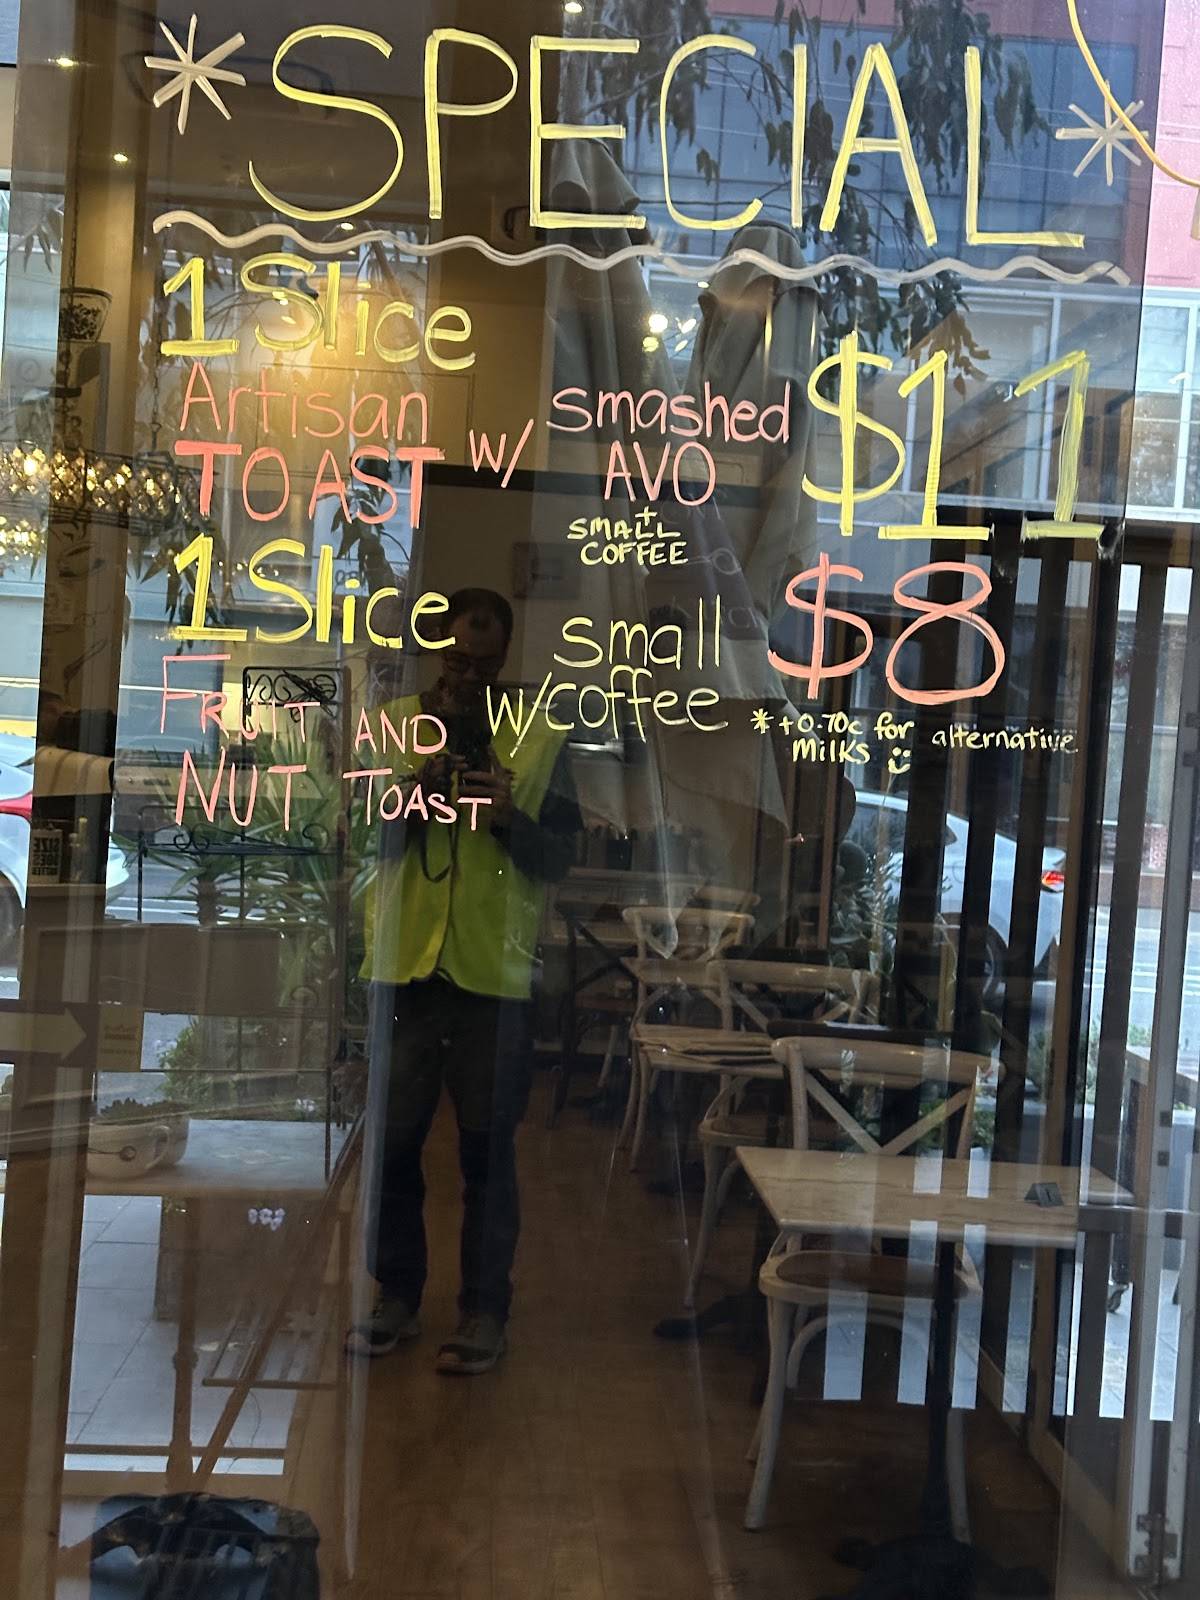 *SPECIAL*
1 Slice
Artisan
TOAST w/ smashed
AVO
+
SMALL
COFFEE
$11
1 Slice
FRUIT AND
NUT TOAST
small
w/coffee
$8
*+0.70c for alternative
Milks
SIZE
DOES
MATTER